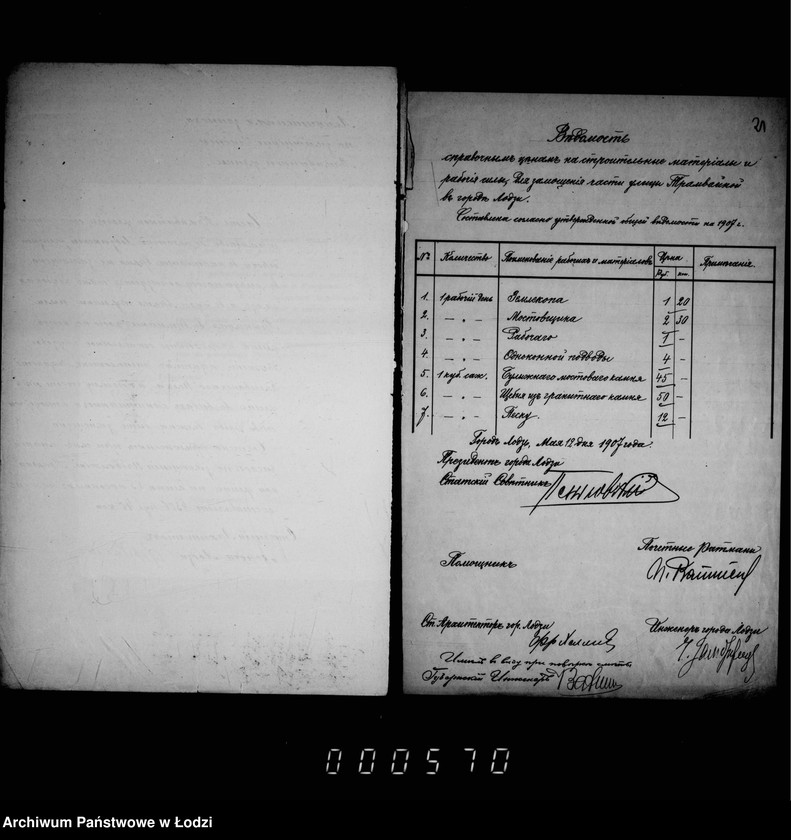 21
Вѣдомость
справочнымъ цѣнамъ на строительные матеріалы и
рабочія силы для замощенія части улицы Трамвайной
въ городѣ Лодзи.
Составлена согласно утвержденной общей вѣдомости на 1907 г.
№ Количество Наименованіе рабочихъ и матеріаловъ Цѣна Примѣчаніе.
Руб. коп.
1. 1 рабочій день Землекопа 1 20
2. — „ — Мостовщика 2 30
3. — „ — Рабочаго 1 —
4. — „ — Одноконной подводы 4 —
5. 1 куб. саж. Булыжнаго мостоваго камня 45 —
6. — „ — Щебня изъ гранитнаго камня 50 —
7. — „ — Песку. 12 —
Городъ Лодзь, Мая 12 дня 1907 года.
Президентъ города Лодзи
Статскій Совѣтникъ
Почетные Ратманы
Помощникъ
Ст. Архитекторъ гор. Лодзи
Инженеръ города Лодзи
Имѣть въ виду при повѣркѣ смѣты
Губернскій Инженеръ
000570
Archiwum Państwowe w Łodzi